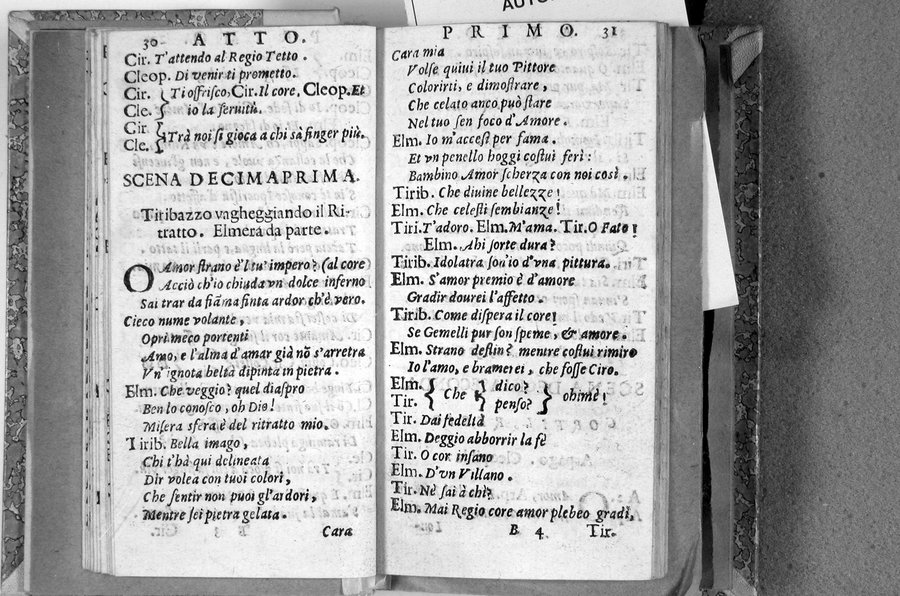 AUTO
30 ATTO.
Cir. T'attendo al Regio Tetto.
Cleop. Di venir ti prometto.
Cir. Ti offrisco, Cir. Il core, Cleop. Et
Cle. io la seruitù.
Cir. Trà noi si gioca a chi sà finger più.
Cle.
SCENA DECIMAPRIMA.
Tiribazzo vagheggiando il Ri-
tratto. Elmera da parte.
O Amor strano è'l tu' impero? (al core
Acciò ch'io chiuda vn dolce inferno
Sai trar da fiāma finta ardor ch'è vero.
Cieco nume volante,
Opri meco portenti
Amo, e l'alma d'amar già nō s'arretra
Vn'ignota beltà dipinta in pietra.
Elm. Che veggio? quel diaspro
Ben lo conosco, oh Dio!
Misera sfera è del ritratto mio.
Tirib. Bella imago,
Chi t'hà qui delineata
Dir volea con tuoi colori,
Che sentir non puoi gl'ardori,
Mentre sei pietra gelata.
Cara
PRIMO. 31
Cara mia
Volse quiui il tuo Pittore
Colorirti, e dimostrare,
Che celato anco può stare
Nel tuo sen foco d'Amore.
Elm. Io m'accesi per fama.
Et vn penello hoggi costui ferì:
Bambino Amor scherza con noi così.
Tirib. Che diuine bellezze!
Elm. Che celesti sembianze!
Tiri. T'adoro. Elm. M'ama. Tir. O Fato!
Elm. Ahi sorte dura?
Tirib. Idolatra son'io d'vna pittura.
Elm. S'amor premio è d'amore
Gradir dourei l'affetto.
Tirib. Come dispera il core!
Se Gemelli pur son speme, & amore.
Elm. Strano destin? mentre costui rimiro
Io l'amo, e bramerei, che fosse Ciro.
Elm. Che dico? ohimè!
Tir. penso?
Tir. Dai fedeltà
Elm. Deggio abborrir la fè
Tir. O cor insano
Elm. D'vn Villano.
Tir. Nè sai à chi?
Elm. Mai Regio core amor plebeo gradì,
B 4 Tir.